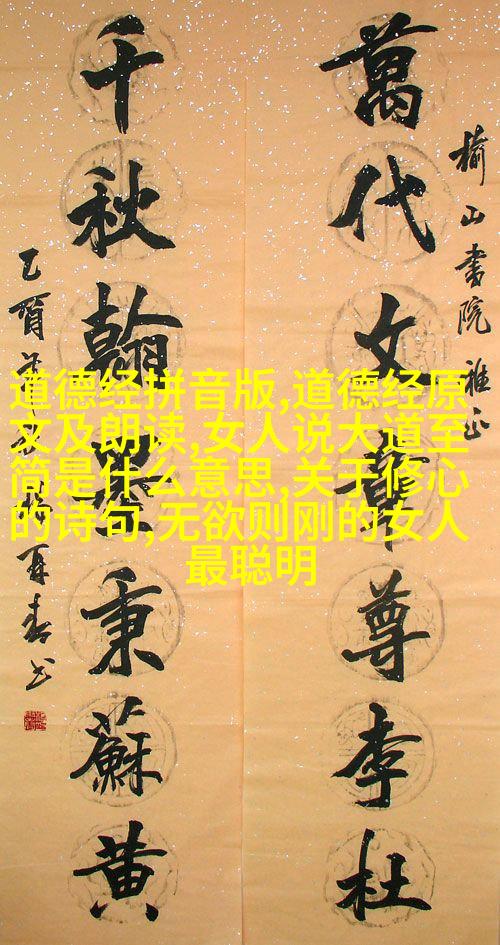 榆山書院 雅正
萬代文章尊李杜
千秋翰墨秉蘇黄
乙酉
再春书
道德经拼音版,道德经原
文及朗读,女人说大道至
简是什么意思,关于修心
的诗句,无欲则刚的女人
最聪明